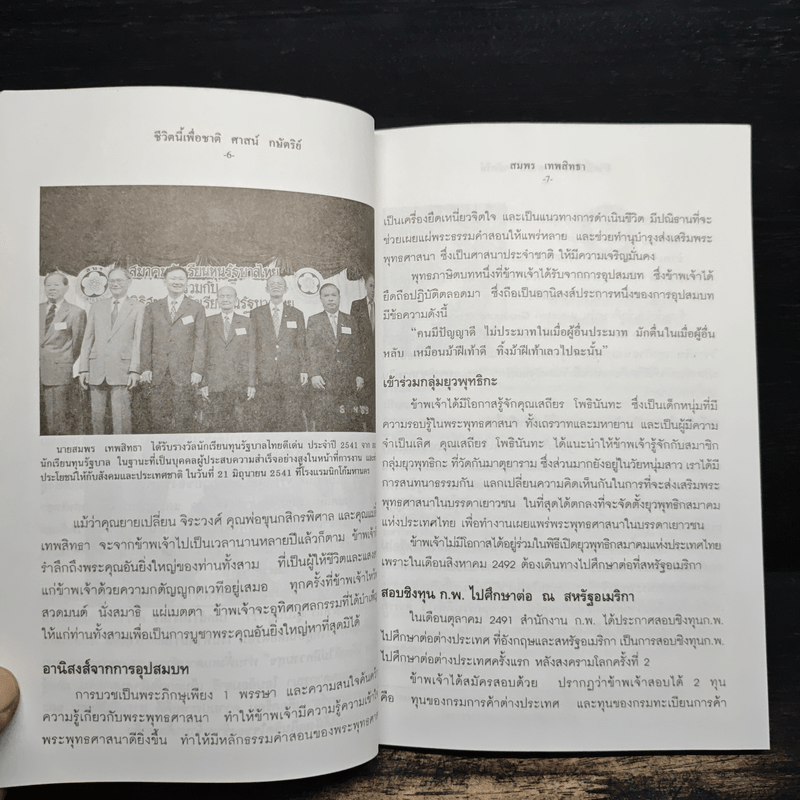 ชีวิตนี้เพื่อชาติ ศาสน์ กษัตริย์
-6-
สมาคมนักเรียนทุนรัฐบาลไทย
ร่วมกับ
นายสมพร เทพสิทธา ได้รับรางวัลนักเรียนทุนรัฐบาลไทยดีเด่น ประจำปี 2541 จาก
นักเรียนทุนรัฐบาล ในฐานะที่เป็นบุคคลผู้ประสบความสำเร็จอย่างสูงในหน้าที่การงาน และ
ประโยชน์ให้กับสังคมและประเทศชาติ ในวันที่ 21 มิถุนายน 2541 ที่โรงแรมนิกโก้มหานคร
แม้ว่าคุณยายเปลี่ยน จิระวงศ์ คุณพ่อขุนกสิกรพิศาล และคุณแม่
เทพสิทธา จะจากข้าพเจ้าไปเป็นเวลานานหลายปีแล้วก็ตาม ข้าพเจ้า
รำลึกถึงพระคุณอันยิ่งใหญ่ของท่านทั้งสาม ที่เป็นผู้ให้ชีวิตและแสง
แก่ข้าพเจ้าด้วยความกตัญญูกตเวทีอยู่เสมอ ทุกครั้งที่ข้าพเจ้าไหว้
สวดมนต์ นั่งสมาธิ แผ่เมตตา ข้าพเจ้าจะอุทิศกุศลกรรมที่ได้บำเพ็ญ
ให้แก่ท่านทั้งสามเพื่อเป็นการบูชาพระคุณอันยิ่งใหญ่หาที่สุดมิได้
อานิสงส์จากการอุปสมบท
การบวชเป็นพระภิกษุเพียง 1 พรรษา และความสนใจค้นคว้า
ความรู้เกี่ยวกับพระพุทธศาสนา ทำให้ข้าพเจ้ามีความรู้ความเข้าใจ
พระพุทธศาสนาดียิ่งขึ้น ทำให้มีหลักธรรมคำสอนของพระพุทธศาส
สมพร เทพสิทธา
-7-
เป็นเครื่องยึดเหนี่ยวจิตใจ และเป็นแนวทางการดำเนินชีวิต มีปณิธานที่จะ
ช่วยเผยแผ่พระธรรมคำสอนให้แพร่หลาย และช่วยทำนุบำรุงส่งเสริมพระ
พุทธศาสนา ซึ่งเป็นศาสนาประจำชาติ ให้มีความเจริญมั่นคง
พุทธภาษิตบทหนึ่งที่ข้าพเจ้าได้รับจากการอุปสมบท ซึ่งข้าพเจ้าได้
ยึดถือปฏิบัติตลอดมา ซึ่งถือเป็นอานิสงส์ประการหนึ่งของการอุปสมบท
มีข้อความดังนี้
“คนมีปัญญาดี ไม่ประมาทในเมื่อผู้อื่นประมาท มักตื่นในเมื่อผู้อื่น
หลับ เหมือนม้าฝีเท้าดี ทิ้งม้าฝีเท้าเลวไปฉะนั้น”
เข้าร่วมกลุ่มยุวพุทธิกะ
ข้าพเจ้าได้มีโอกาสรู้จักคุณเสถียร โพธินันทะ ซึ่งเป็นเด็กหนุ่มที่มี
ความรอบรู้ในพระพุทธศาสนา ทั้งเถรวาทและมหายาน และเป็นผู้มีความ
จำเป็นเลิศ คุณเสถียร โพธินันทะ ได้แนะนำให้ข้าพเจ้ารู้จักกับสมาชิก
กลุ่มยุวพุทธิกะ ที่วัดกันมาตุยาราม ซึ่งส่วนมากยังอยู่ในวัยหนุ่มสาว เราได้มี
การสนทนาธรรมกัน แลกเปลี่ยนความคิดเห็นกันในการที่จะส่งเสริมพระ
พุทธศาสนาในบรรดาเยาวชน ในที่สุดได้ตกลงที่จะจัดตั้งยุวพุทธิกสมาคม
แห่งประเทศไทย เพื่อทำงานเผยแพร่พระพุทธศาสนาในบรรดาเยาวชน
ข้าพเจ้าไม่มีโอกาสได้อยู่ร่วมในพิธีเปิดยุวพุทธิกสมาคมแห่งประเทศไทย
เพราะในเดือนสิงหาคม 2492 ต้องเดินทางไปศึกษาต่อที่สหรัฐอเมริกา
สอบชิงทุน ก.พ. ไปศึกษาต่อ ณ สหรัฐอเมริกา
ในเดือนตุลาคม 2491 สำนักงาน ก.พ. ได้ประกาศสอบชิงทุนก.พ.
ไปศึกษาต่อต่างประเทศ ที่อังกฤษและสหรัฐอเมริกา เป็นการสอบชิงทุนก.พ.
ไปศึกษาต่อต่างประเทศครั้งแรก หลังสงครามโลกครั้งที่ 2
ข้าพเจ้าได้สมัครสอบด้วย ปรากฏว่าข้าพเจ้าสอบได้ 2 ทุน
คือ ทุนของกรมการค้าต่างประเทศ และทุนของกรมทะเบียนการค้า